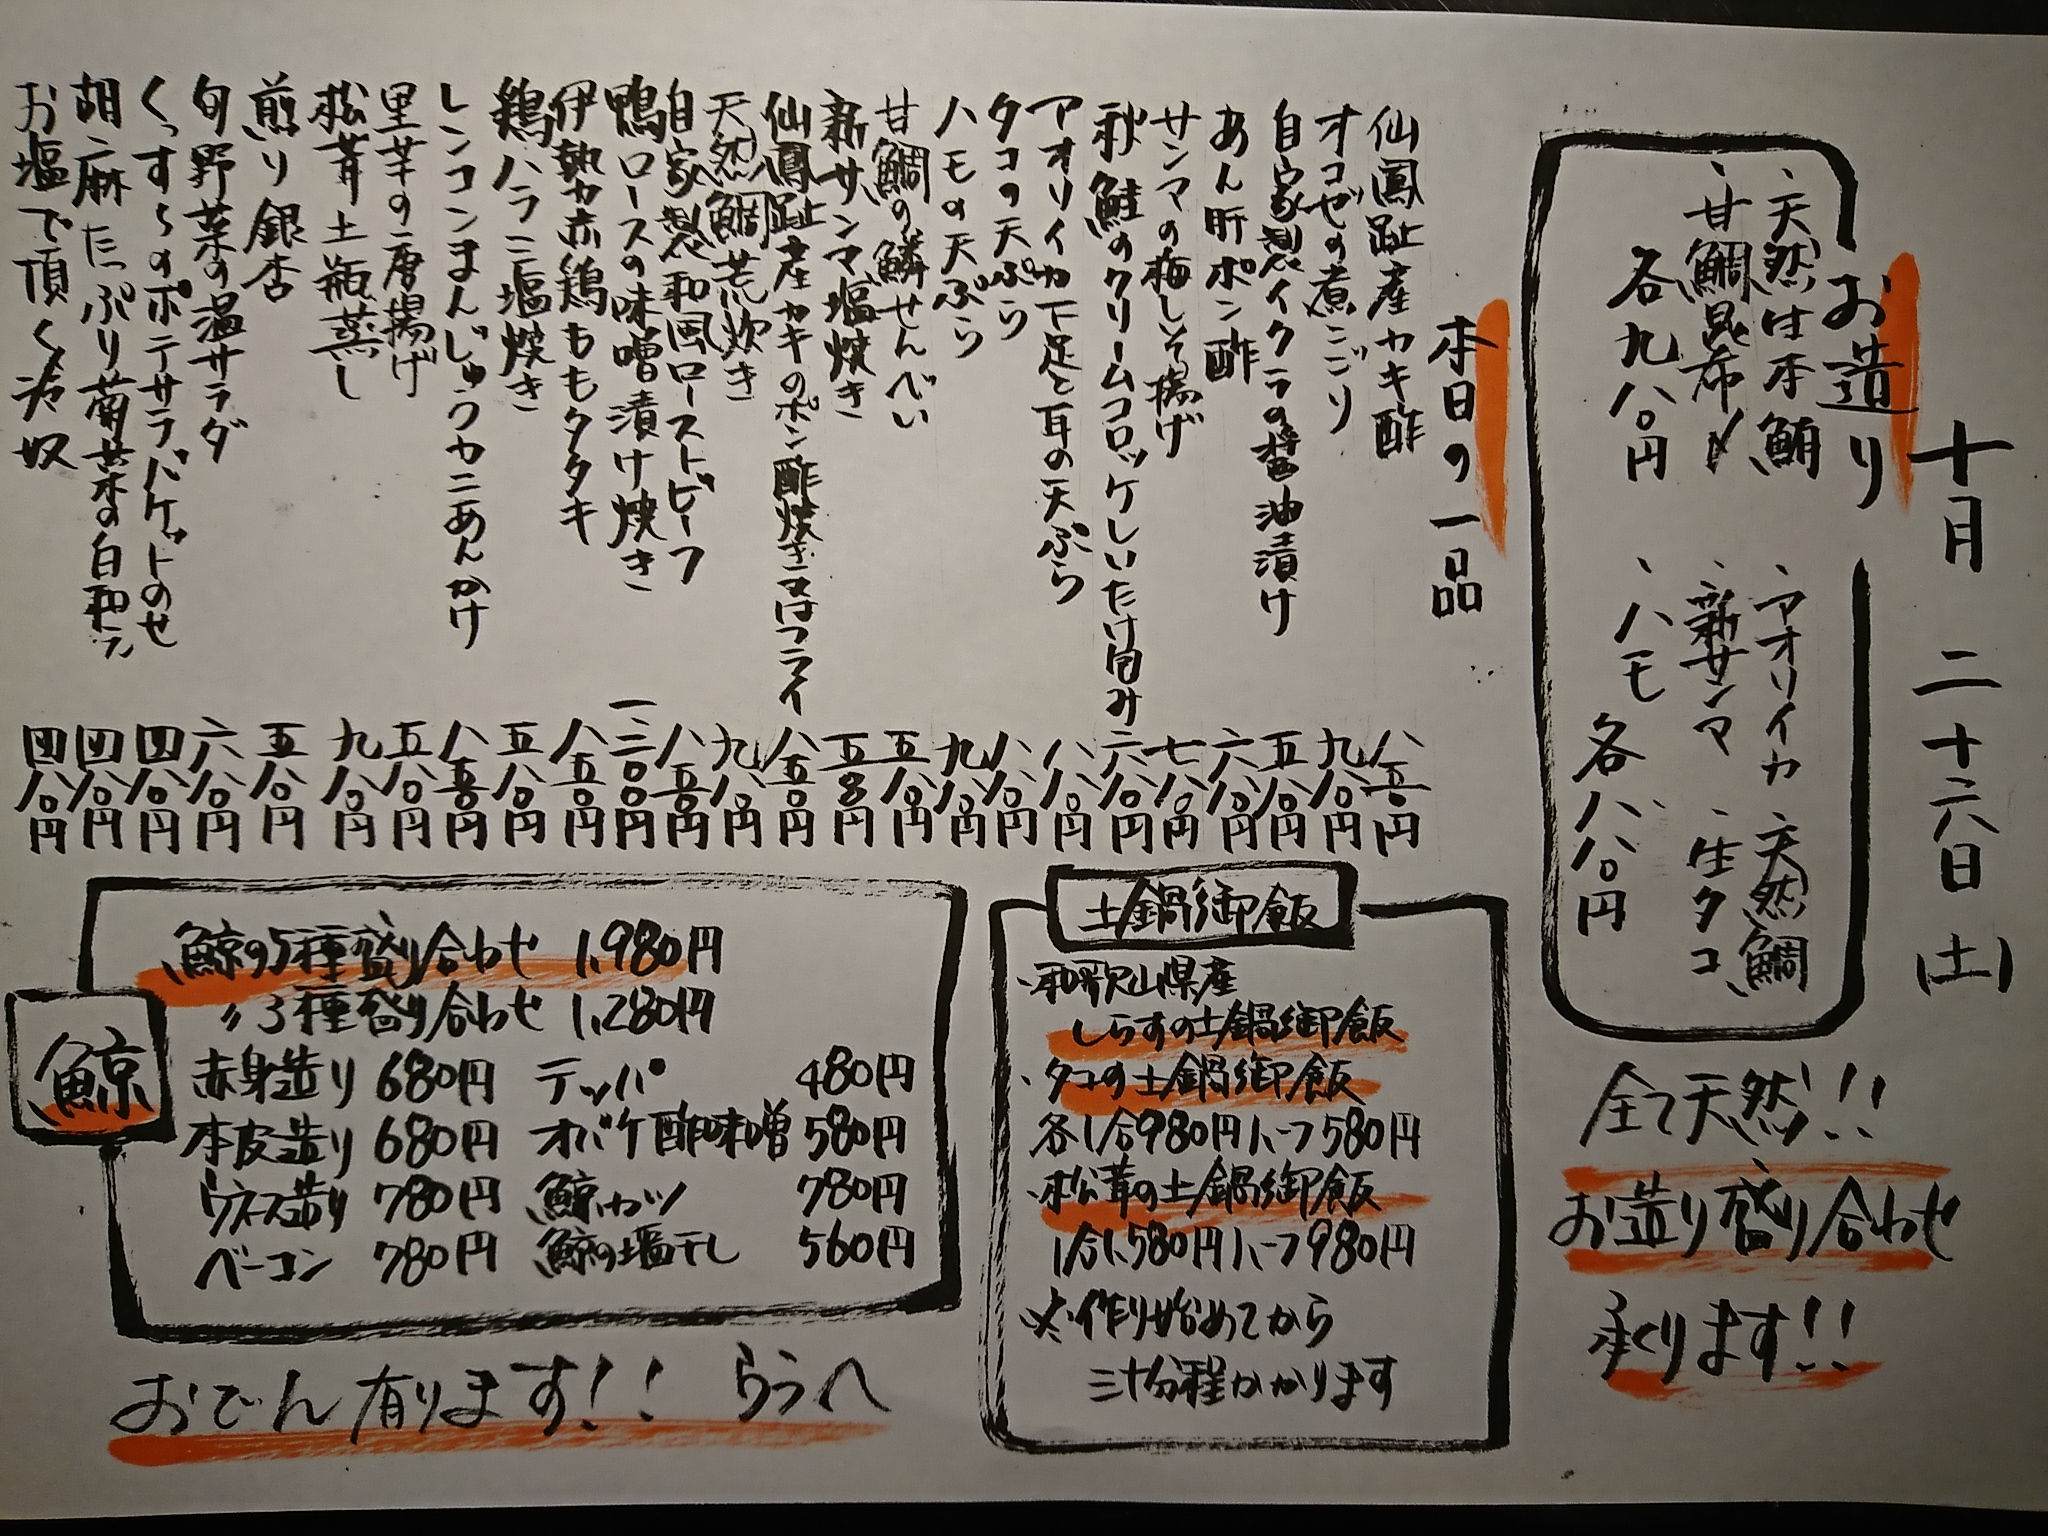 十月 二十六日(土)
お造り
・天然生本鮪
・甘鯛昆布〆
各九八〇円
・アオリイカ ・天然鯛
・新サンマ ・生タコ
・ハモ 各八八〇円
全て天然!!
お造り盛り合わせ
承ります!!
本日の一品
仙鳳趾産カキ酢 八五〇円
オコゼの煮こごり 九八〇円
自家製イクラの醤油漬け 五八〇円
あん肝ポン酢 六八〇円
サンマの梅しそ揚げ 七八〇円
秋鮭のクリームコロッケしいたけ包み 六八〇円
アオリイカ下足と耳の天ぷら 八八〇円
タコの天ぷら 八八〇円
ハモの天ぷら 九八〇円
甘鯛の鱗せんべい 五八〇円
新サンマ塩焼き
仙鳳趾産カキのポン酢焼き又はフライ 八五〇円
天然鯛荒炊き 九八〇円
自家製和風ローストビーフ 八五〇円
鴨ロースの味噌漬け焼き 一二〇〇円
伊勢赤鶏ももタタキ 八五〇円
鶏ハラミ塩焼き 五八〇円
レンコンまんじゅうカニあんかけ 八五〇円
里芋の唐揚げ 五八〇円
松茸土瓶蒸し 九八〇円
煎り銀杏 五八〇円
旬野菜の温サラダ 六八〇円
くっすんのポテサラバゲットのせ 四八〇円
胡麻たっぷり菊菜の白和え 四八〇円
お塩で頂く冷奴 四八〇円
土鍋御飯
・和歌山県産
しらすの土鍋御飯
・タコの土鍋御飯
各1合980円ハーフ580円
・松茸の土鍋御飯
1合1,580円ハーフ980円
※作り始めてから
三十分程かかります
鯨
鯨の5種盛り合わせ 1,980円
〃3種盛り合わせ 1,280円
赤身造り 680円 テッパ 480円
本皮造り 680円 オバケ酢味噌 580円
ウネス造り 780円 鯨カツ 780円
ベーコン 780円 鯨の塩干し 560円
おでん有ります!! うらへ